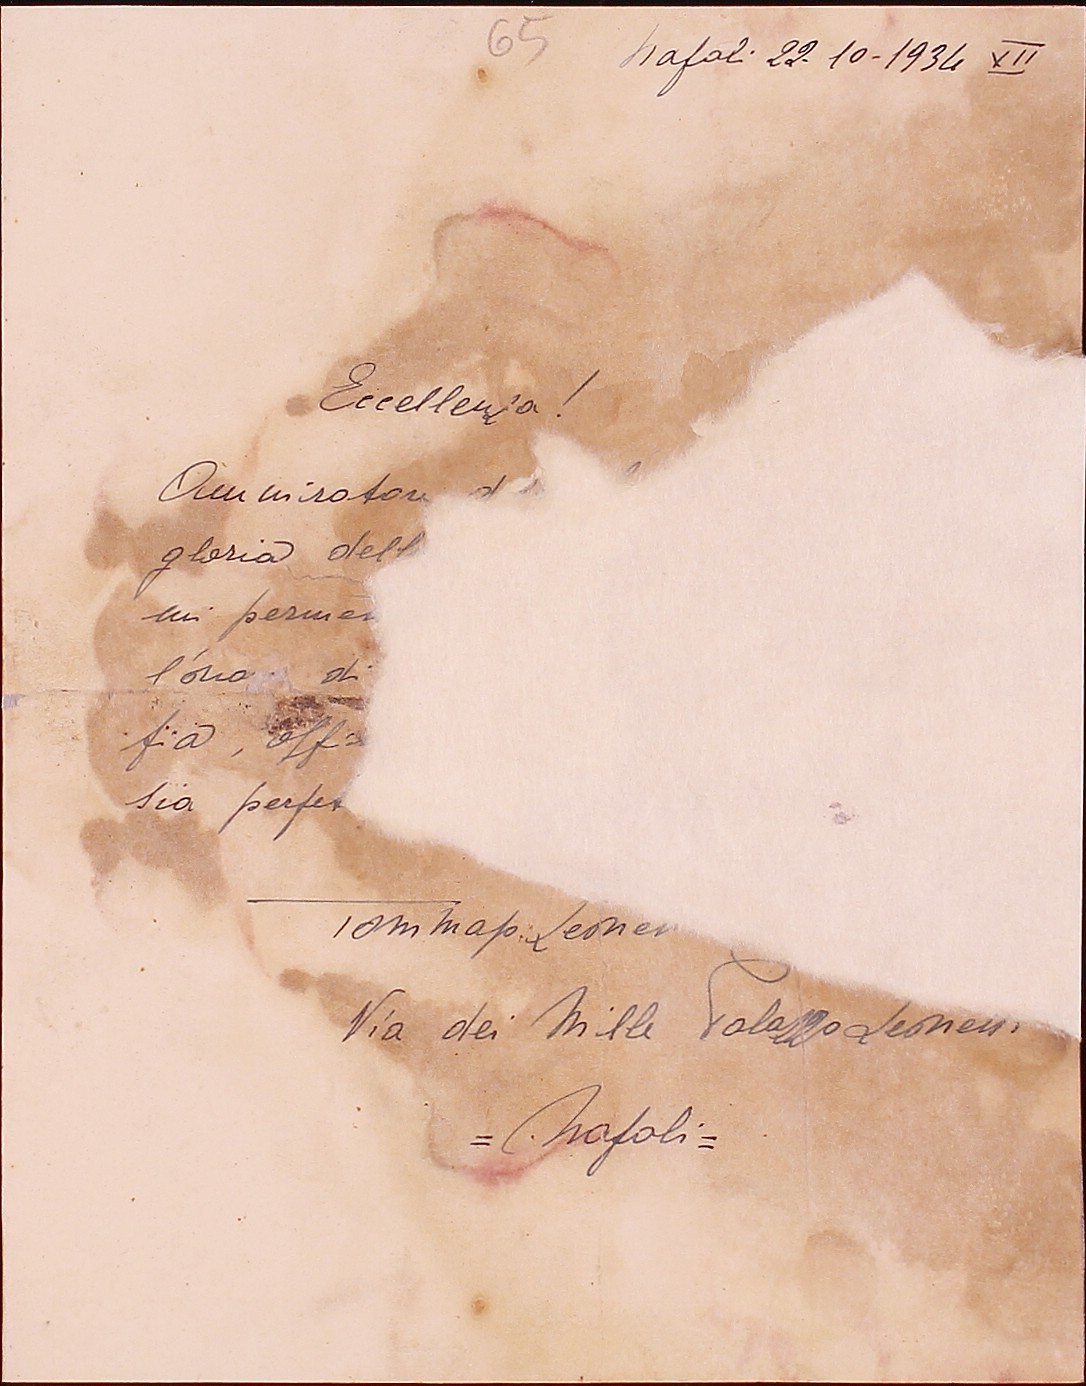 65
Napoli 22-10-1934 XII
Eccellenza!
Ammiratore d
gloria dell
mi permet
l'ono di
fia, offi
sia perfet
Tommaso Leonetti
Via dei Mille Palazzo Leonetti
= Napoli =